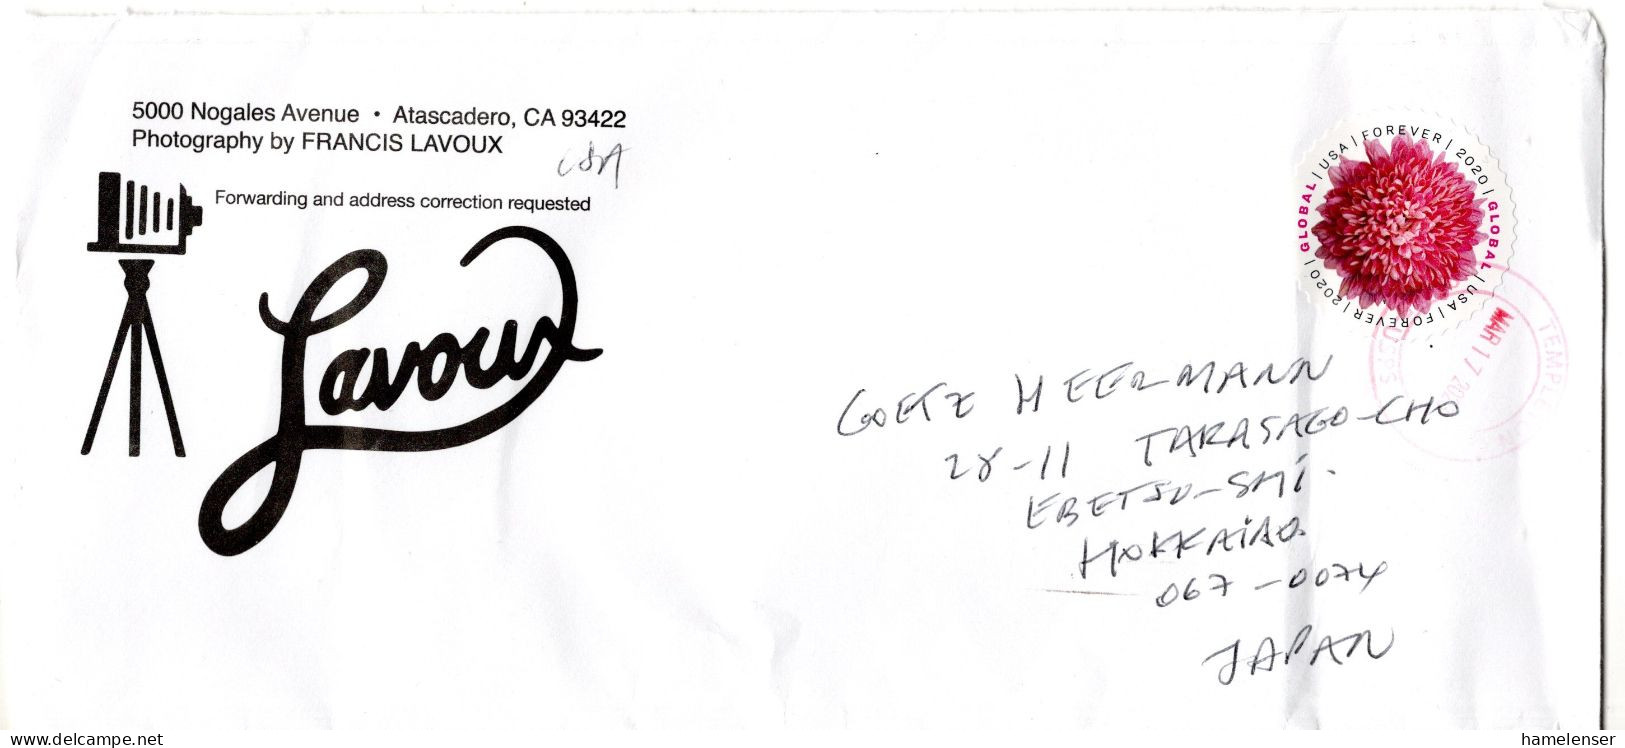 5000 Nogales Avenue • Atascadero, CA 93422
Photography by FRANCIS LAVOUX
USA
Forwarding and address correction requested
Lavoux
GLOBAL | USA | FOREVER | 2020 | GLOBAL | USA | FOREVER | 2020 |
USPS
MAR 17
GOETZ MEERMANN
28-11 TARASAGO-CHO
EBETSU-SHI.
HOKKAIDO
067-0074
JAPAN
www.delcampe.net
hamelenser